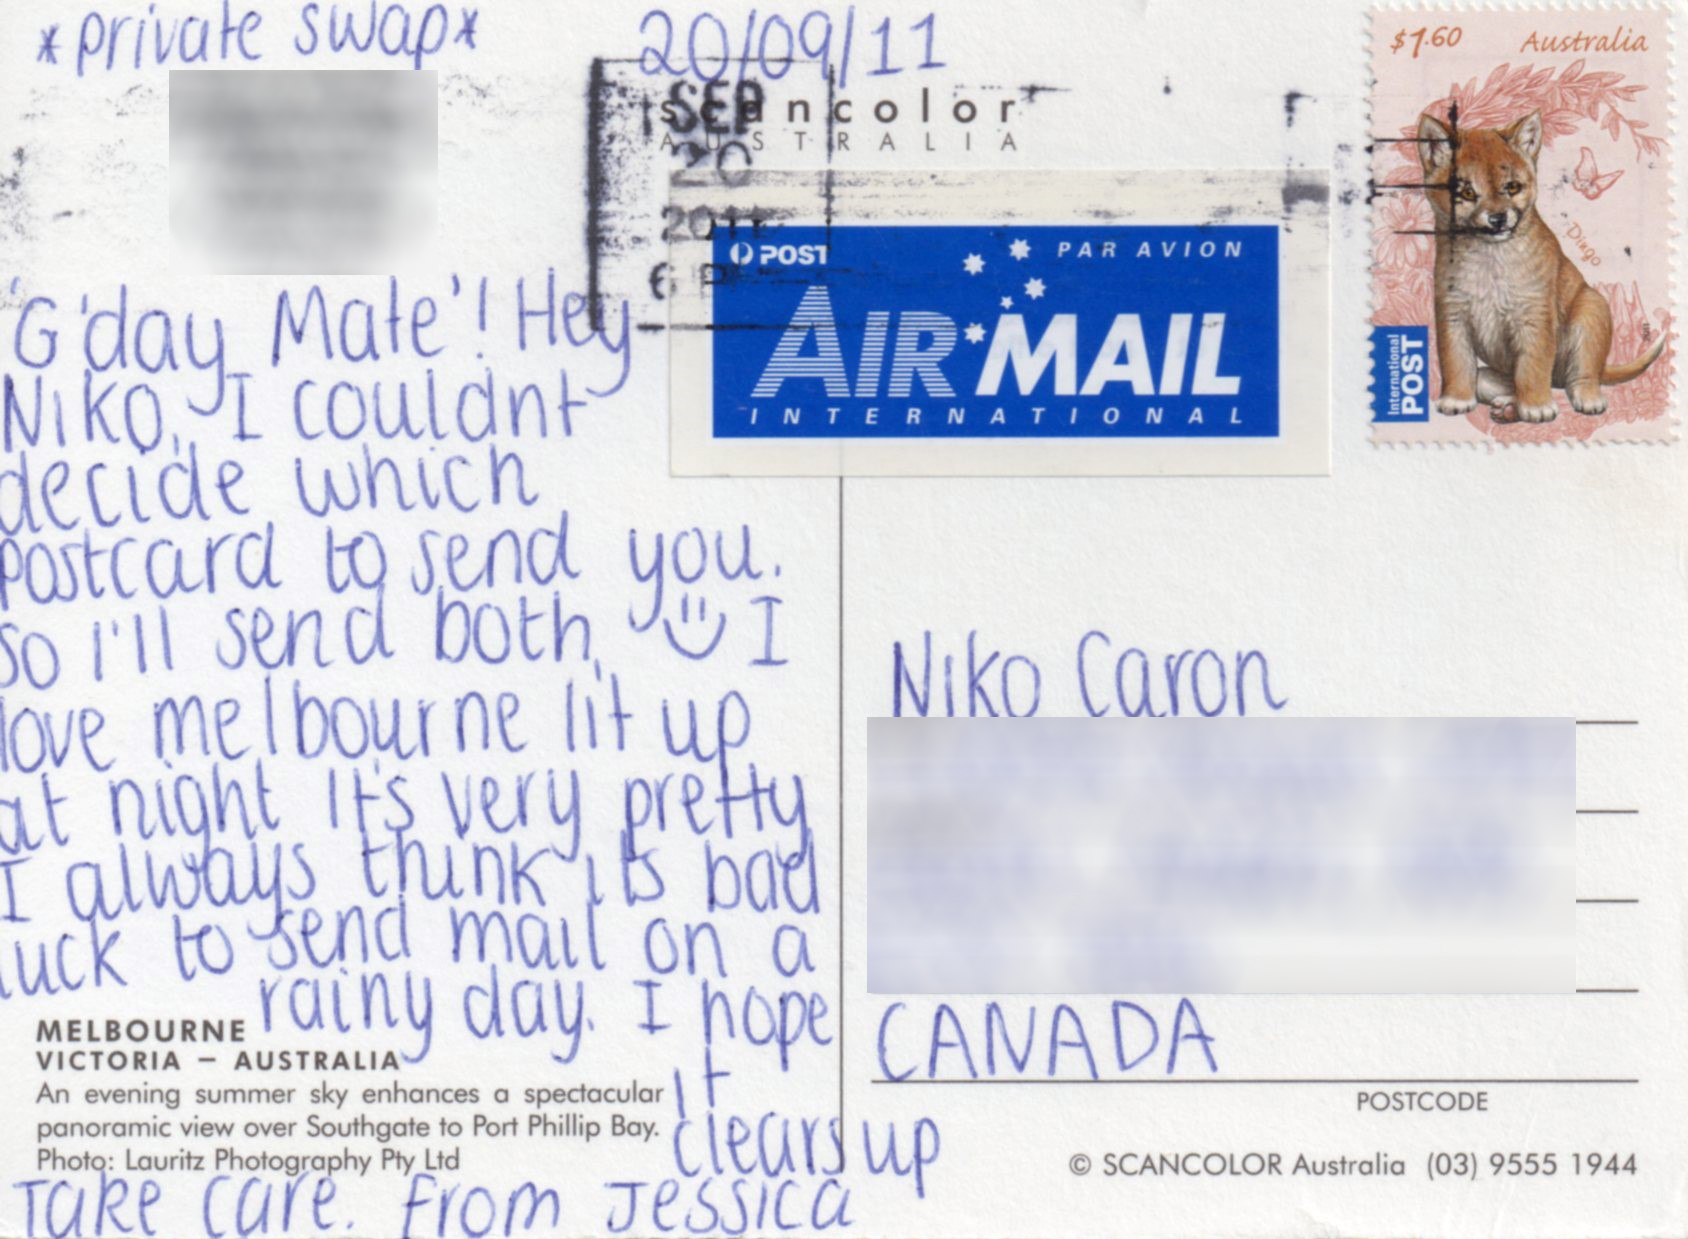 *private swap*
20/09/11
scancolor
AUSTRALIA
SEP
20
2011
6 P
$1.60 Australia
Dingo
International
POST
POST
PAR AVION
AIR MAIL
INTERNATIONAL
'G'day Mate'! Hey
Niko, I couldnt
decide which
postcard to send you.
so I'll send both, I
love melbourne lit up
at night It's very pretty
I always think its bad
luck to send mail on a
rainy day. I hope
it
clears up
Take care. From Jessica
MELBOURNE
VICTORIA – AUSTRALIA
An evening summer sky enhances a spectacular
panoramic view over Southgate to Port Phillip Bay.
Photo: Lauritz Photography Pty Ltd
Niko Caron
CANADA
POSTCODE
© SCANCOLOR Australia (03) 9555 1944